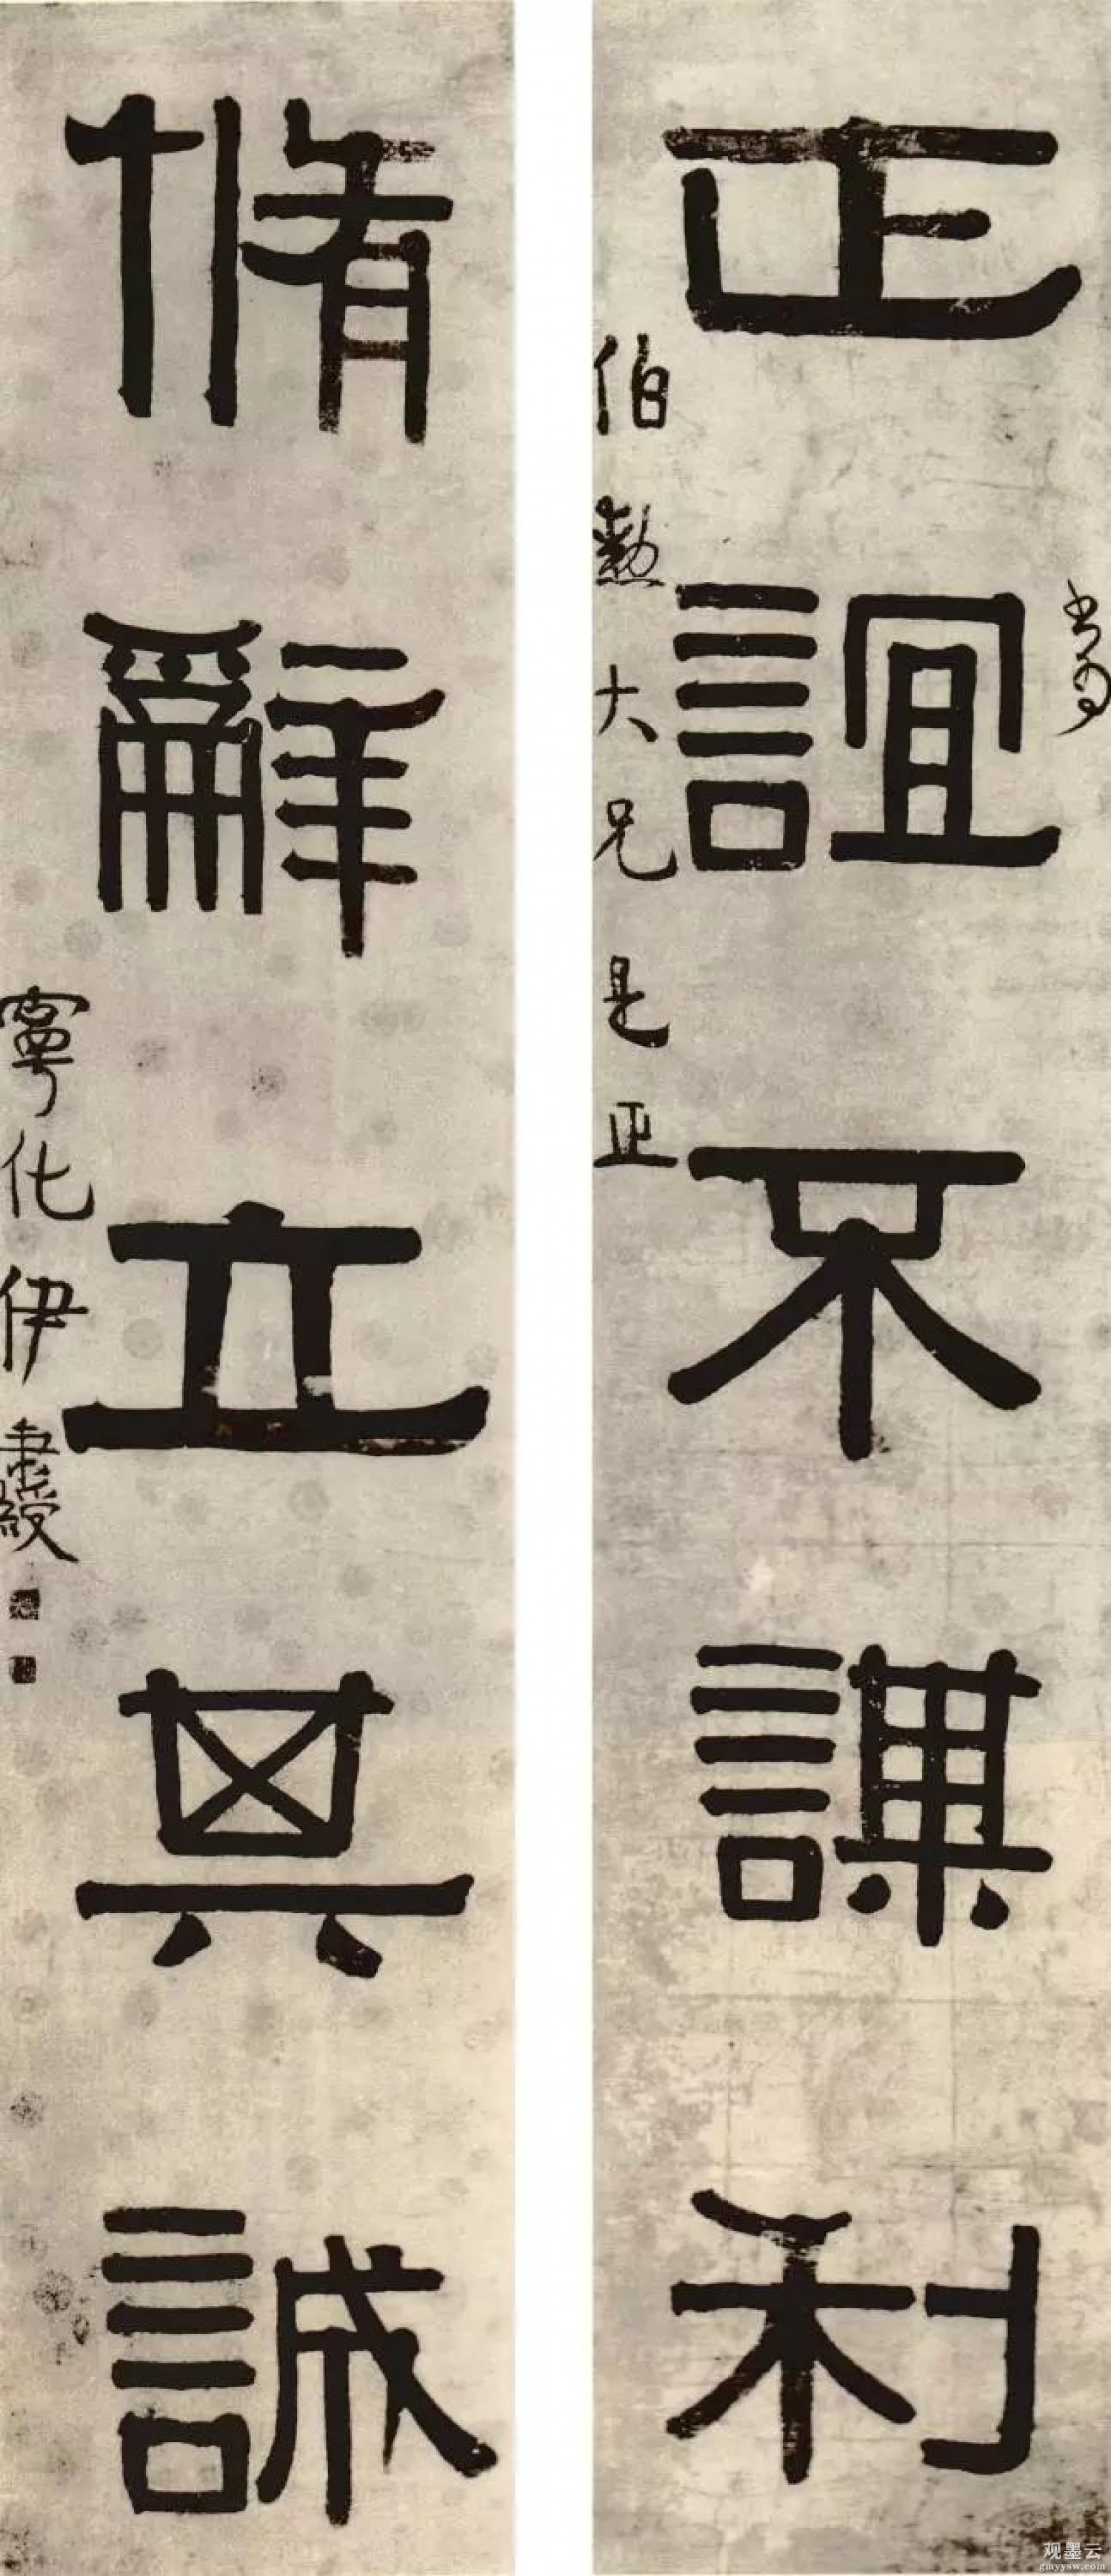 正誼不謀利
書為
伯勲大兄是正
脩辭立其誠
寧化伊秉綬
观墨云
gmyysw.com